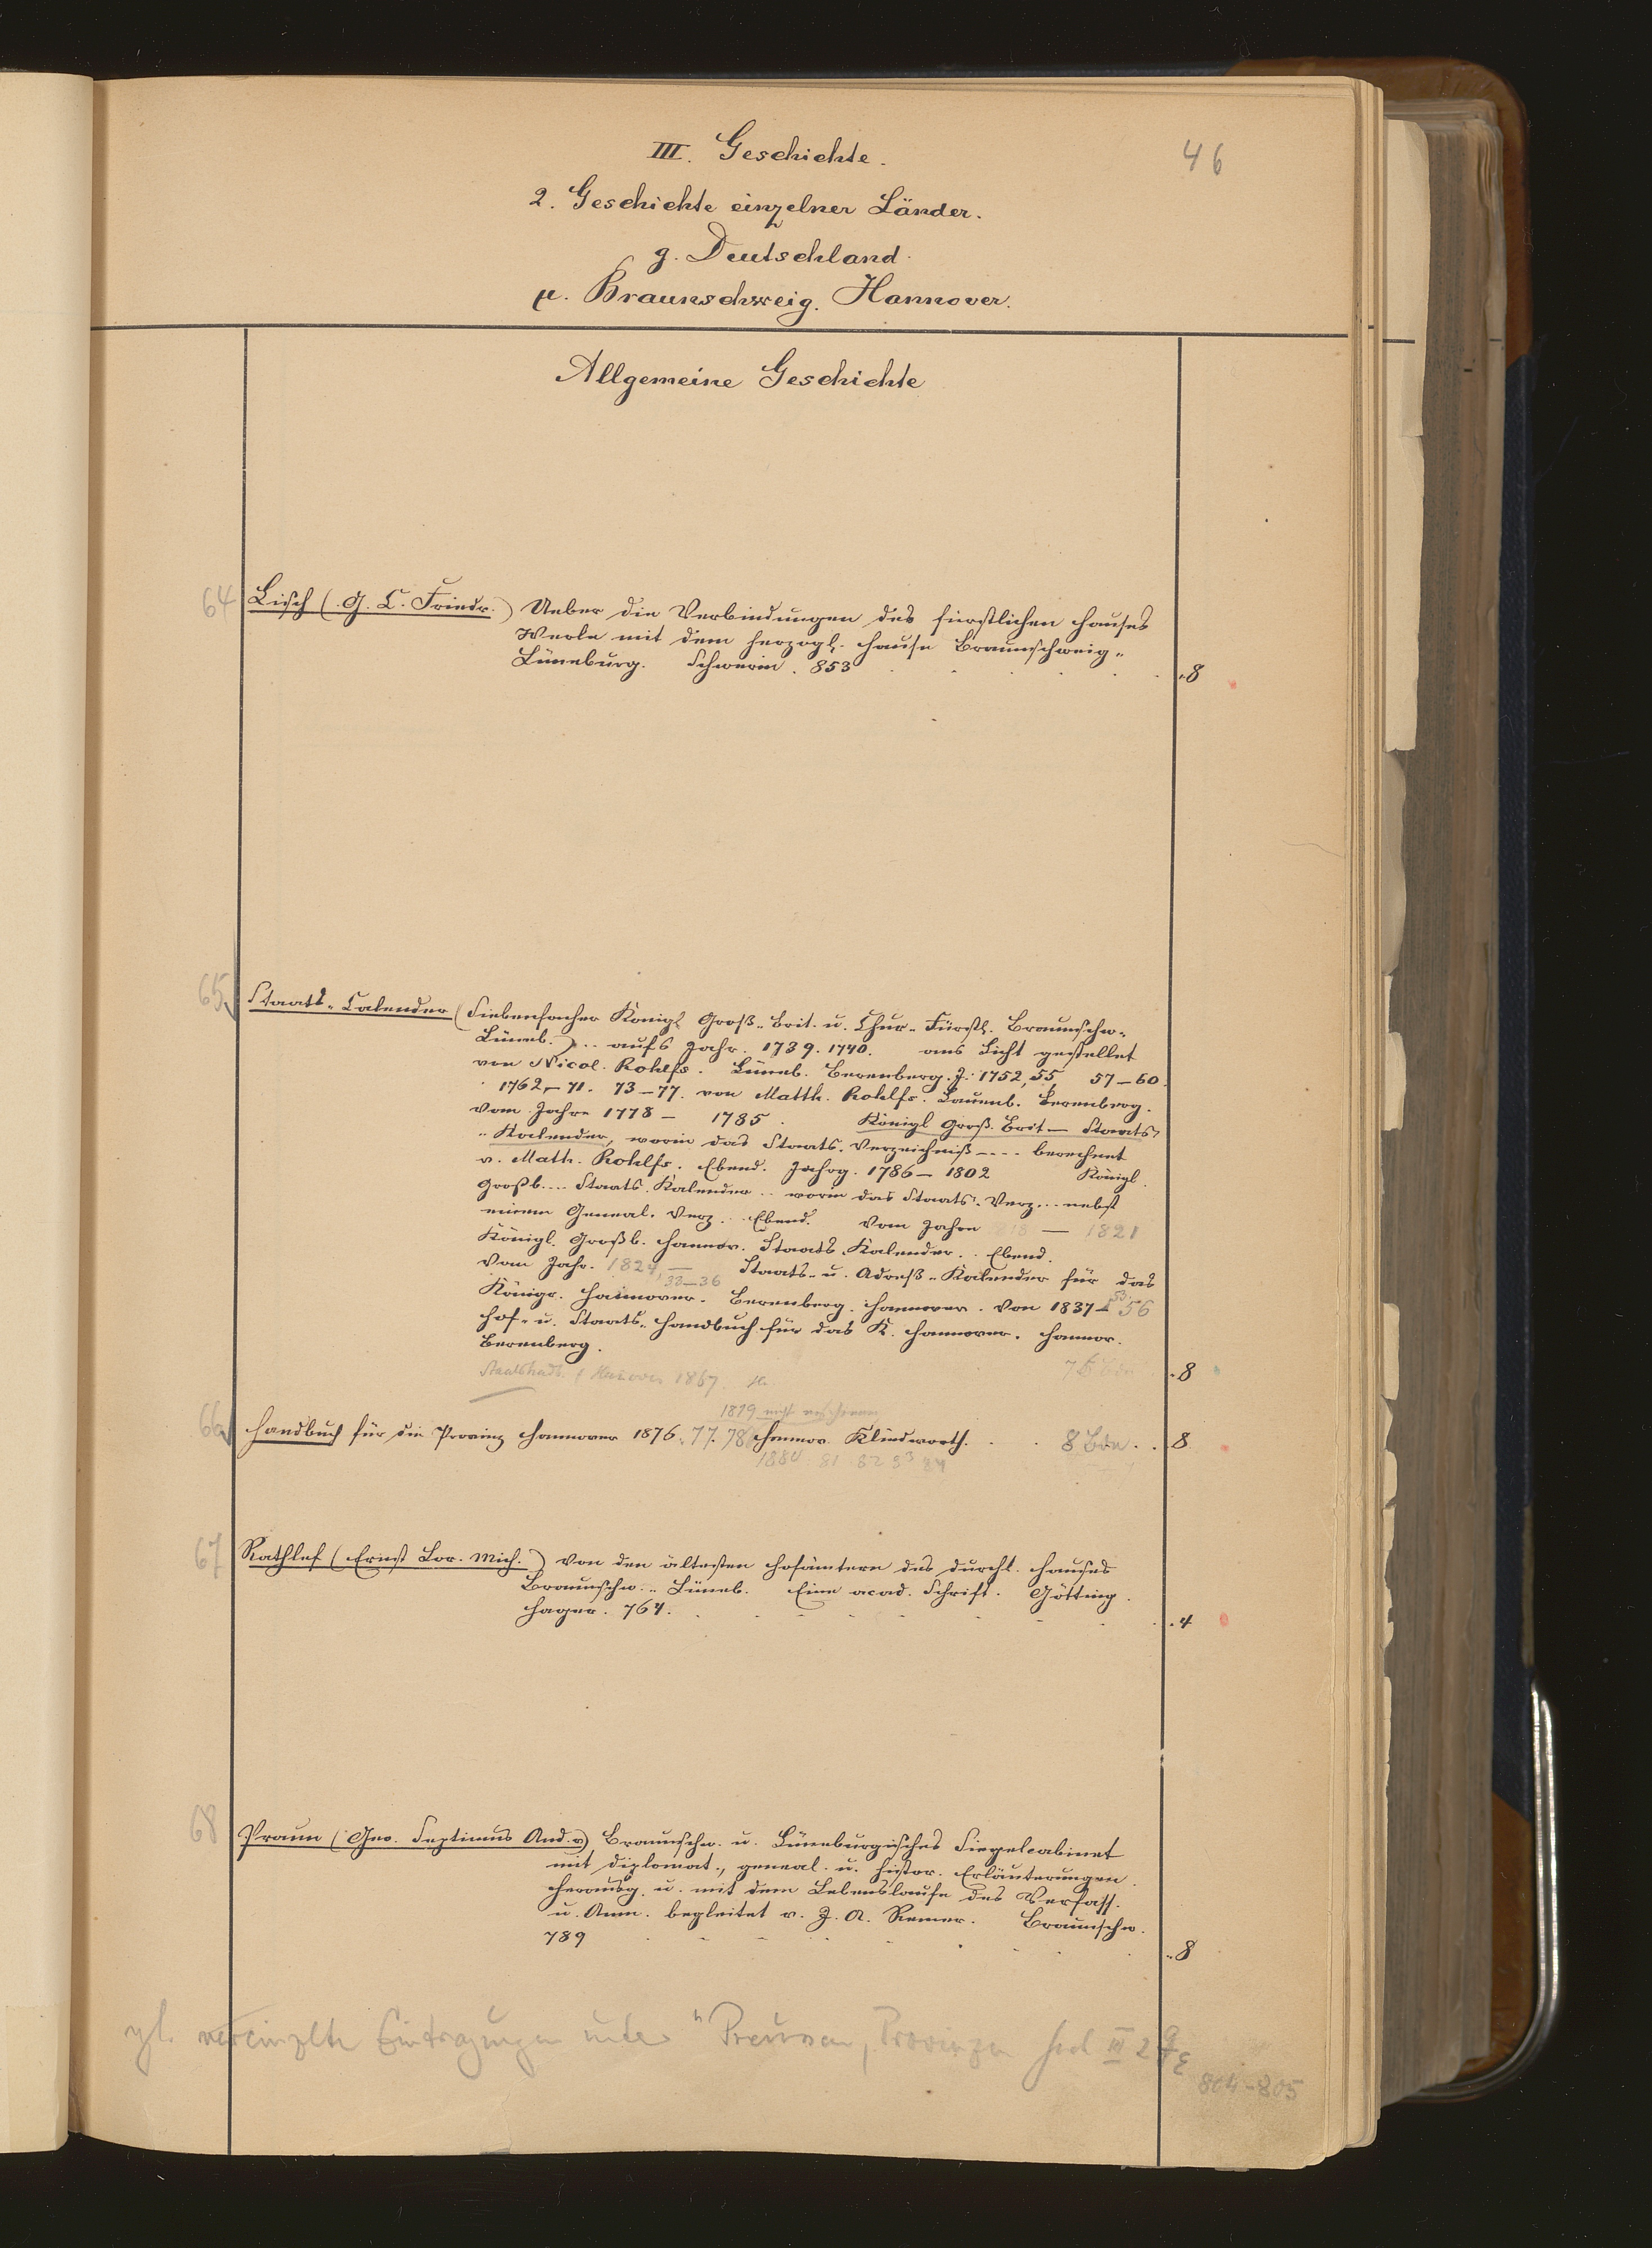 46
III. Geschichte.
2. Geschichte einzelner Länder.
g. Deutschland.
μ. Braunschweig. Hannover.
Allgemeine Geschichte
64 Lisch (G. C. Friedr.) Ueber die Verbindungen des fürstlichen Hauses
Werle mit dem herzogl. Hause Braunschweig-
Lüneburg. Schwerin. 853 . . . . . 8
65 Staats-Calender (Siebenfacher Königl. Groß-Brit. u. Chur-Fürstl. Braunschw.
Lüneb.) .. aufs Jahr. 1739. 1740. ans Licht gestellet
von Nicol. Rohlfs. Lüneb. Berenberg. J. 1752, 55, 57–60.
1762–71. 73–77. von Matth. Rohlfs. Lauenb. Berenberg.
Vom Jahre 1778 – 1785. Königl Groß. Brit – Staats-
Kalender, worin das Staats-Verzeichniß .... berechnet
v. Math. Rohlfs. Ebend. Jahrg. 1786 – 1802 Königl.
Großb.... Staats-Kalender .. worin das Staats-Verz... nebst
einem Geneal. Verz... Ebend. Vom Jahre 818 — 1821
Königl. Großb. Hannov. Staats-Kalender.. Ebend.
Vom Jahr. 1824, — 33–36 Staats- u. Adreß-Kalender für das
Königr. Hannover. Berenberg. Hannover. Von 1837 – 53, 56
Hof- u. Staats-Handbuch für das K. Hannover. Hannov.
Berenberg.
Hannover 1867. 8
1879 nicht erschienen
66 Handbuch für die Provinz Hannover 1876. 77. 78 Hannov. Klindworth. . . 8 Bde. . . 8
1880 81 82 83 84
67 Rathlef (Ernst Lor. Mich.) Von den ältesten Hofämtern des durchl. Hauses
Braunschw.-Lüneb. Eine acad. Schrift. Götting.
Hager. 764. . . . . . . 4
68 Praun (Geo. Septimus And. v) Braunschw. u. Lüneburgisches Siegelcabinet
mit diplomat., geneal. u. histor. Erläuterungen.
Herausg. u. mit dem Lebenslaufe des Verfass.
u. Anm. begleitet v. J. A. Remer. Braunschw.
789 . . . . . . 8
vgl. vereinzelte Eintragungen unter "Preussen, Provinzen III 2 g ε
804-805